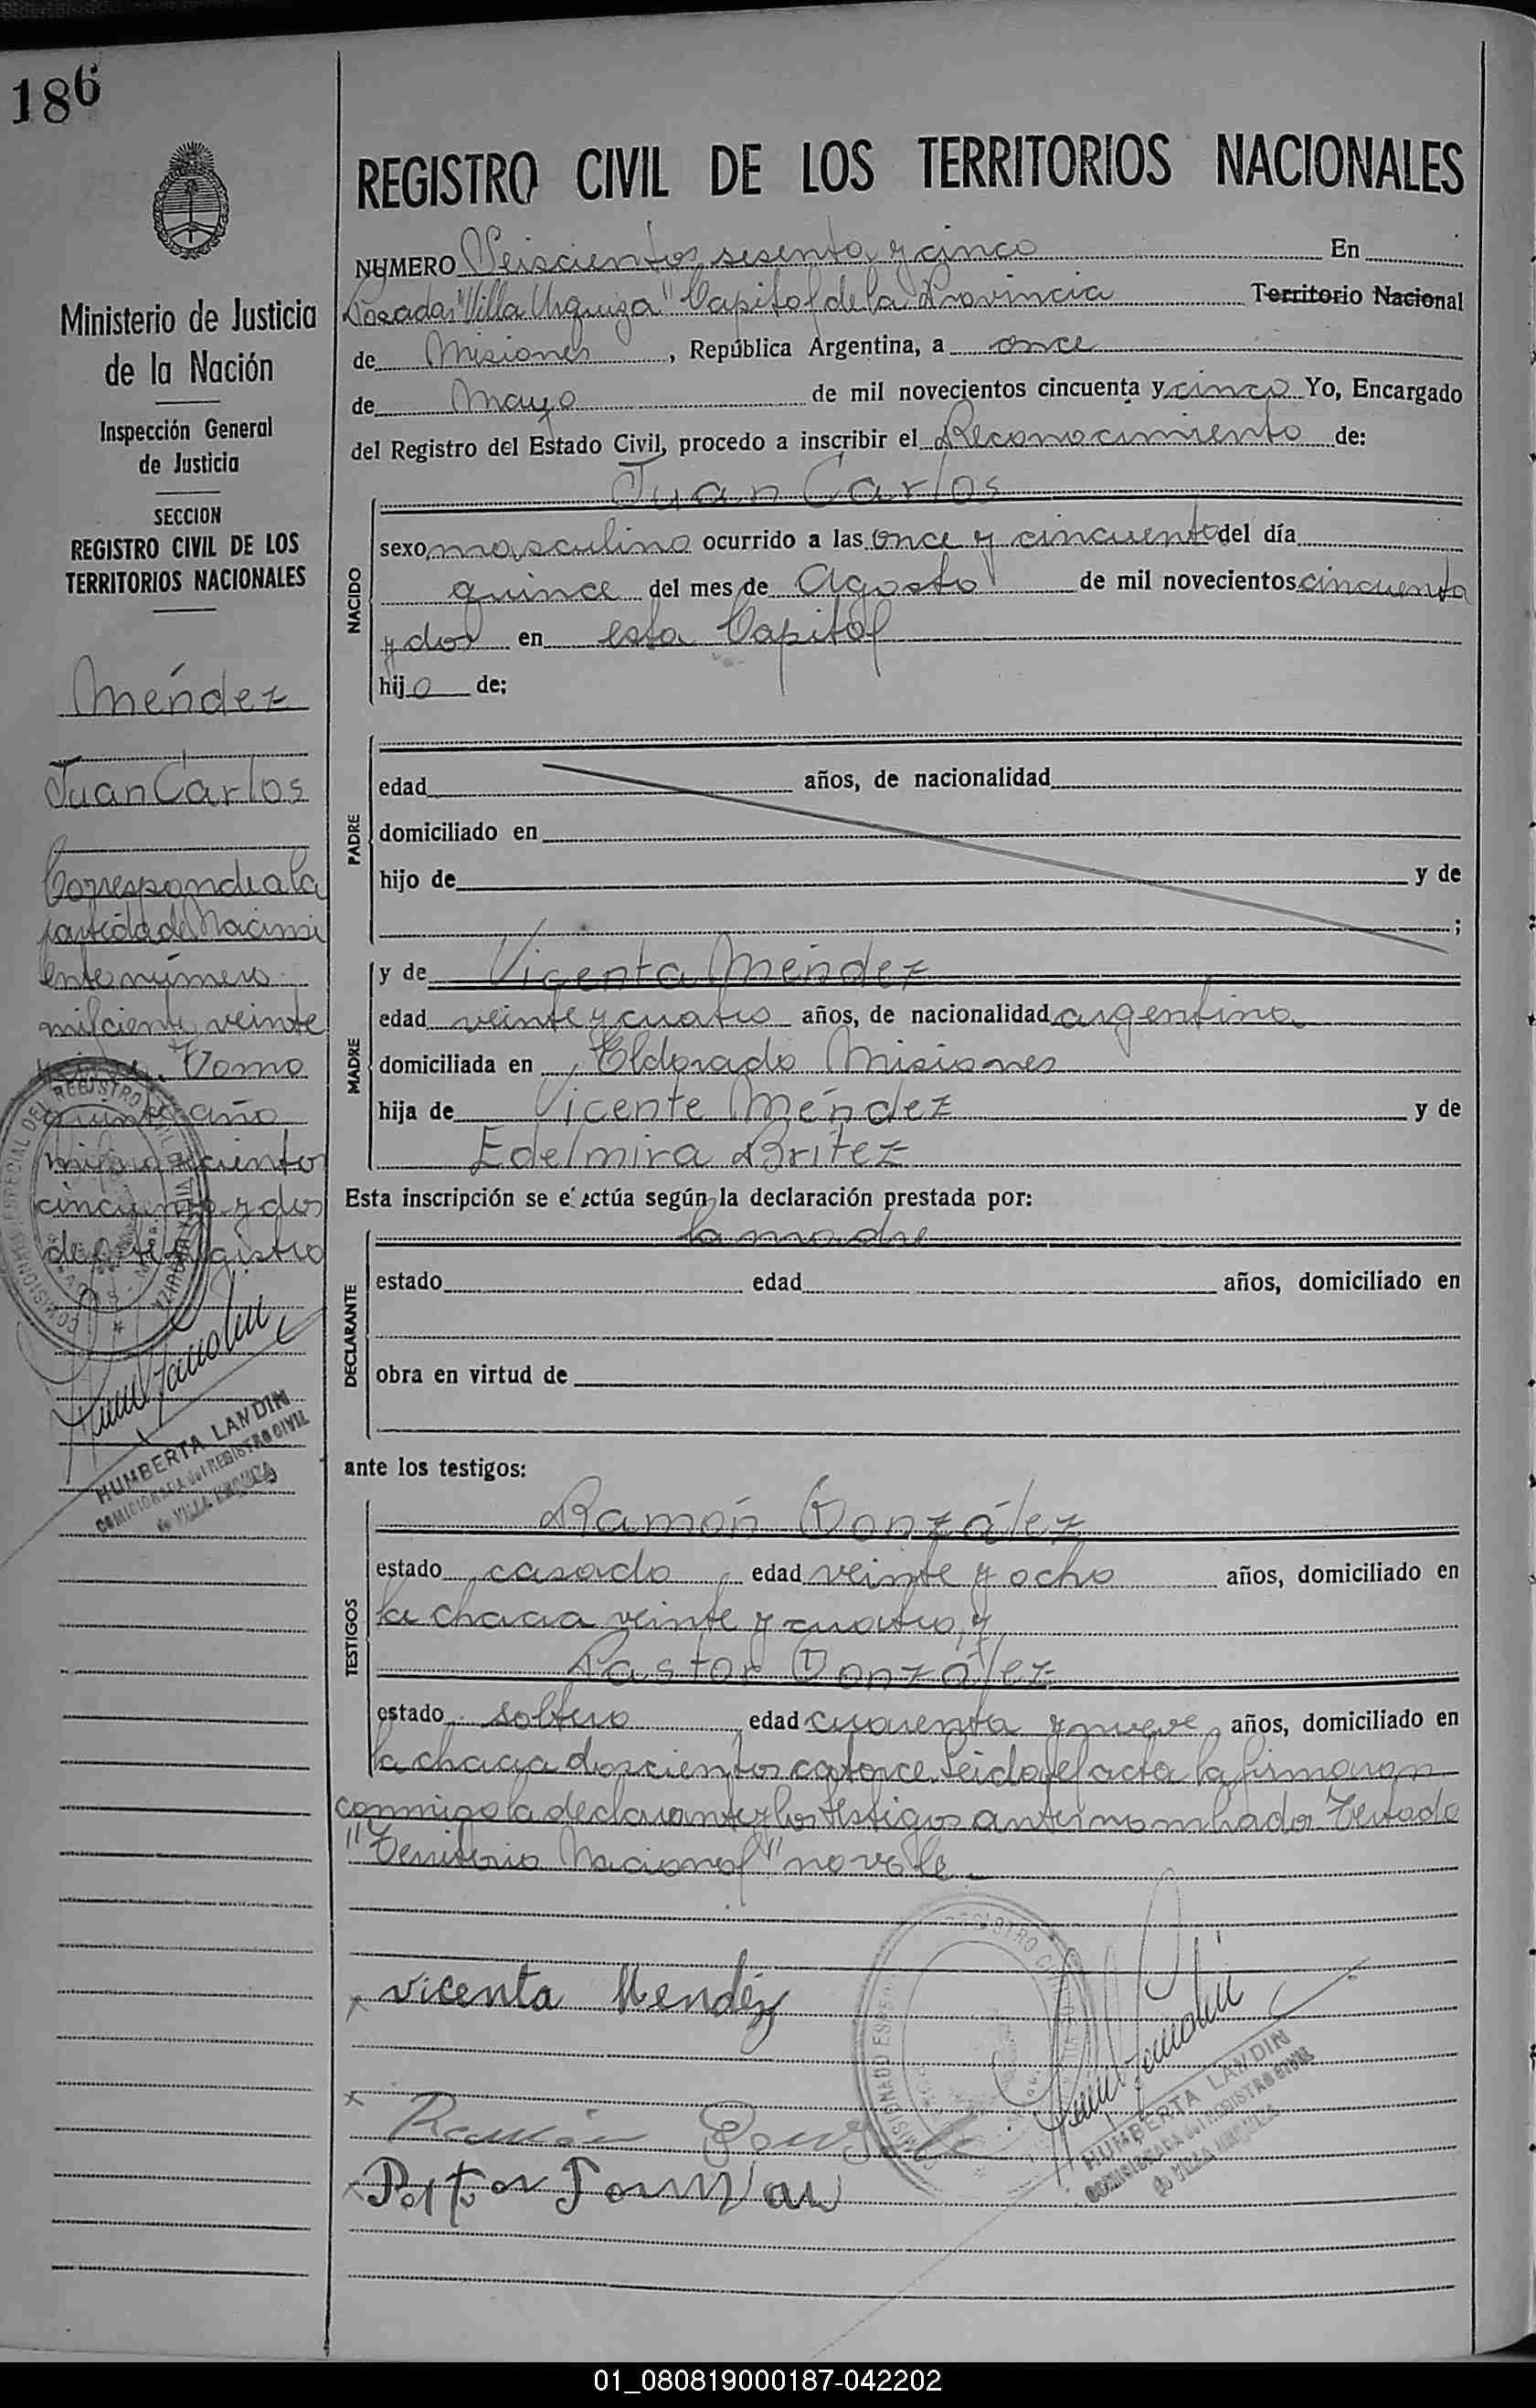 186
REGISTRO CIVIL DE LOS TERRITORIOS NACIONALES
Ministerio de Justicia
de la Nación
Inspección General
de Justicia
SECCION
REGISTRO CIVIL DE LOS
TERRITORIOS NACIONALES
Méndez
Juan Carlos
Corresponde a la
partida de Nacimi
ento número
mil ciento veinte
Tomo
quinto año
mil novecientos
cincuenta y dos
de este registro
HUMBERTA LANDIN
COMISIONADA del REGISTRO CIVIL
de VILLA URQUIZA
NUMERO Seiscientos sesenta y cinco En
Posadas "Villa Urquiza" Capital de la Provincia Territorio Nacional
de Misiones, República Argentina, a once
de Mayo de mil novecientos cincuenta y cinco Yo, Encargado
del Registro del Estado Civil, procedo a inscribir el Reconocimiento de:
Juan Carlos
NACIDO
sexo masculino ocurrido a las once y cincuenta del día
quince del mes de Agosto de mil novecientos cincuenta
y dos en esta Capital
hijo de:
PADRE
edad años, de nacionalidad
domiciliado en
hijo de y de
;
y de Vicenta Méndez
MADRE
edad veinte y cuatro años, de nacionalidad argentina
domiciliada en Eldorado Misiones
hija de Vicente Méndez y de
Edelmira Britez
Esta inscripción se efectúa según la declaración prestada por:
la madre
DECLARANTE
estado edad años, domiciliado en
obra en virtud de
ante los testigos:
Ramón González
TESTIGOS
estado casado edad veinte y ocho años, domiciliado en
la chacra veinte y cuatro, y
Pastor González
estado soltero edad cuarenta y nueve, años, domiciliado en
la chacra doscientos catorce. Leida el acta la firmaron
conmigo la declarante y los testigos antes nombrados. Testado
"Territorio Nacional" no vale.
x vicenta Mendéz
x Ramón
x
HUMBERTA LANDIN
COMISIONADA del REGISTRO CIVIL
de VILLA URQUIZA
01_080819000187-042202